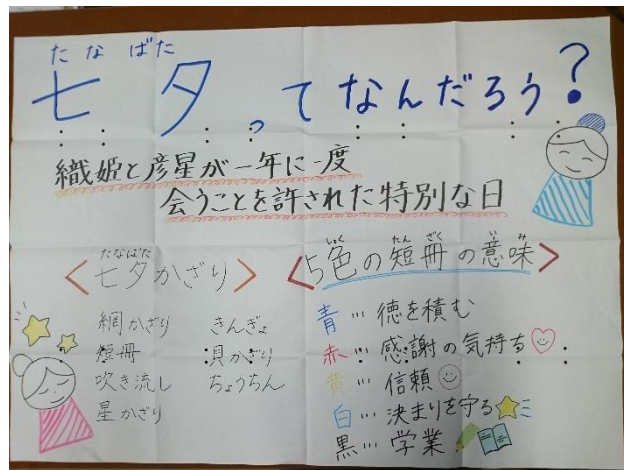 たなばた
七夕ってなんだろう？
織姫と彦星が一年に一度
会うことを許された特別な日
たなばた
＜七夕かざり＞
網かざり
短冊
吹き流し
星かざり
きんぎょ
貝かざり
ちょうちん
しょく たん ざく い み
＜5色の短冊の意味＞
青…徳を積む
赤…感謝の気持ち
黄…信頼
白…決まりを守る
黒…学業